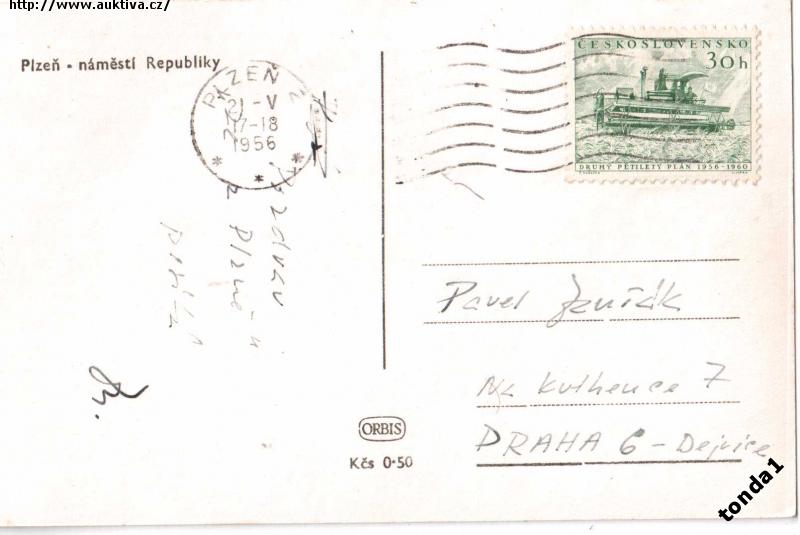 http://www.auktiva.cz/
Plzeň - náměstí Republiky
PLZEŇ 2
21-V
17-18
1956
* * *
ČESKOSLOVENSKO
30h
DRUHÝ PĚTILETÝ PLÁN 1956-1960
Pozdrav
z Plzně
Pavel
7
PRAHA 6 - Dejvice
ORBIS
Kčs 0·50
tonda1